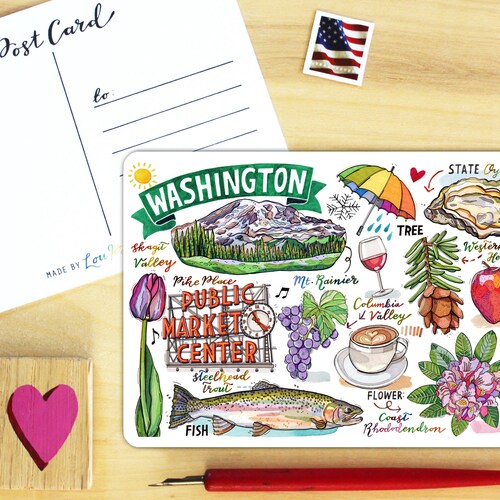 Post Card
to:
MADE BY
WASHINGTON
STATE
TREE
Skagit
Valley
Mt. Rainier
Western
Pike Place
PUBLIC
MARKET
CENTER
Columbia
Valley
steelhead
trout
FISH
FLOWER:
Coast
Rhododendron